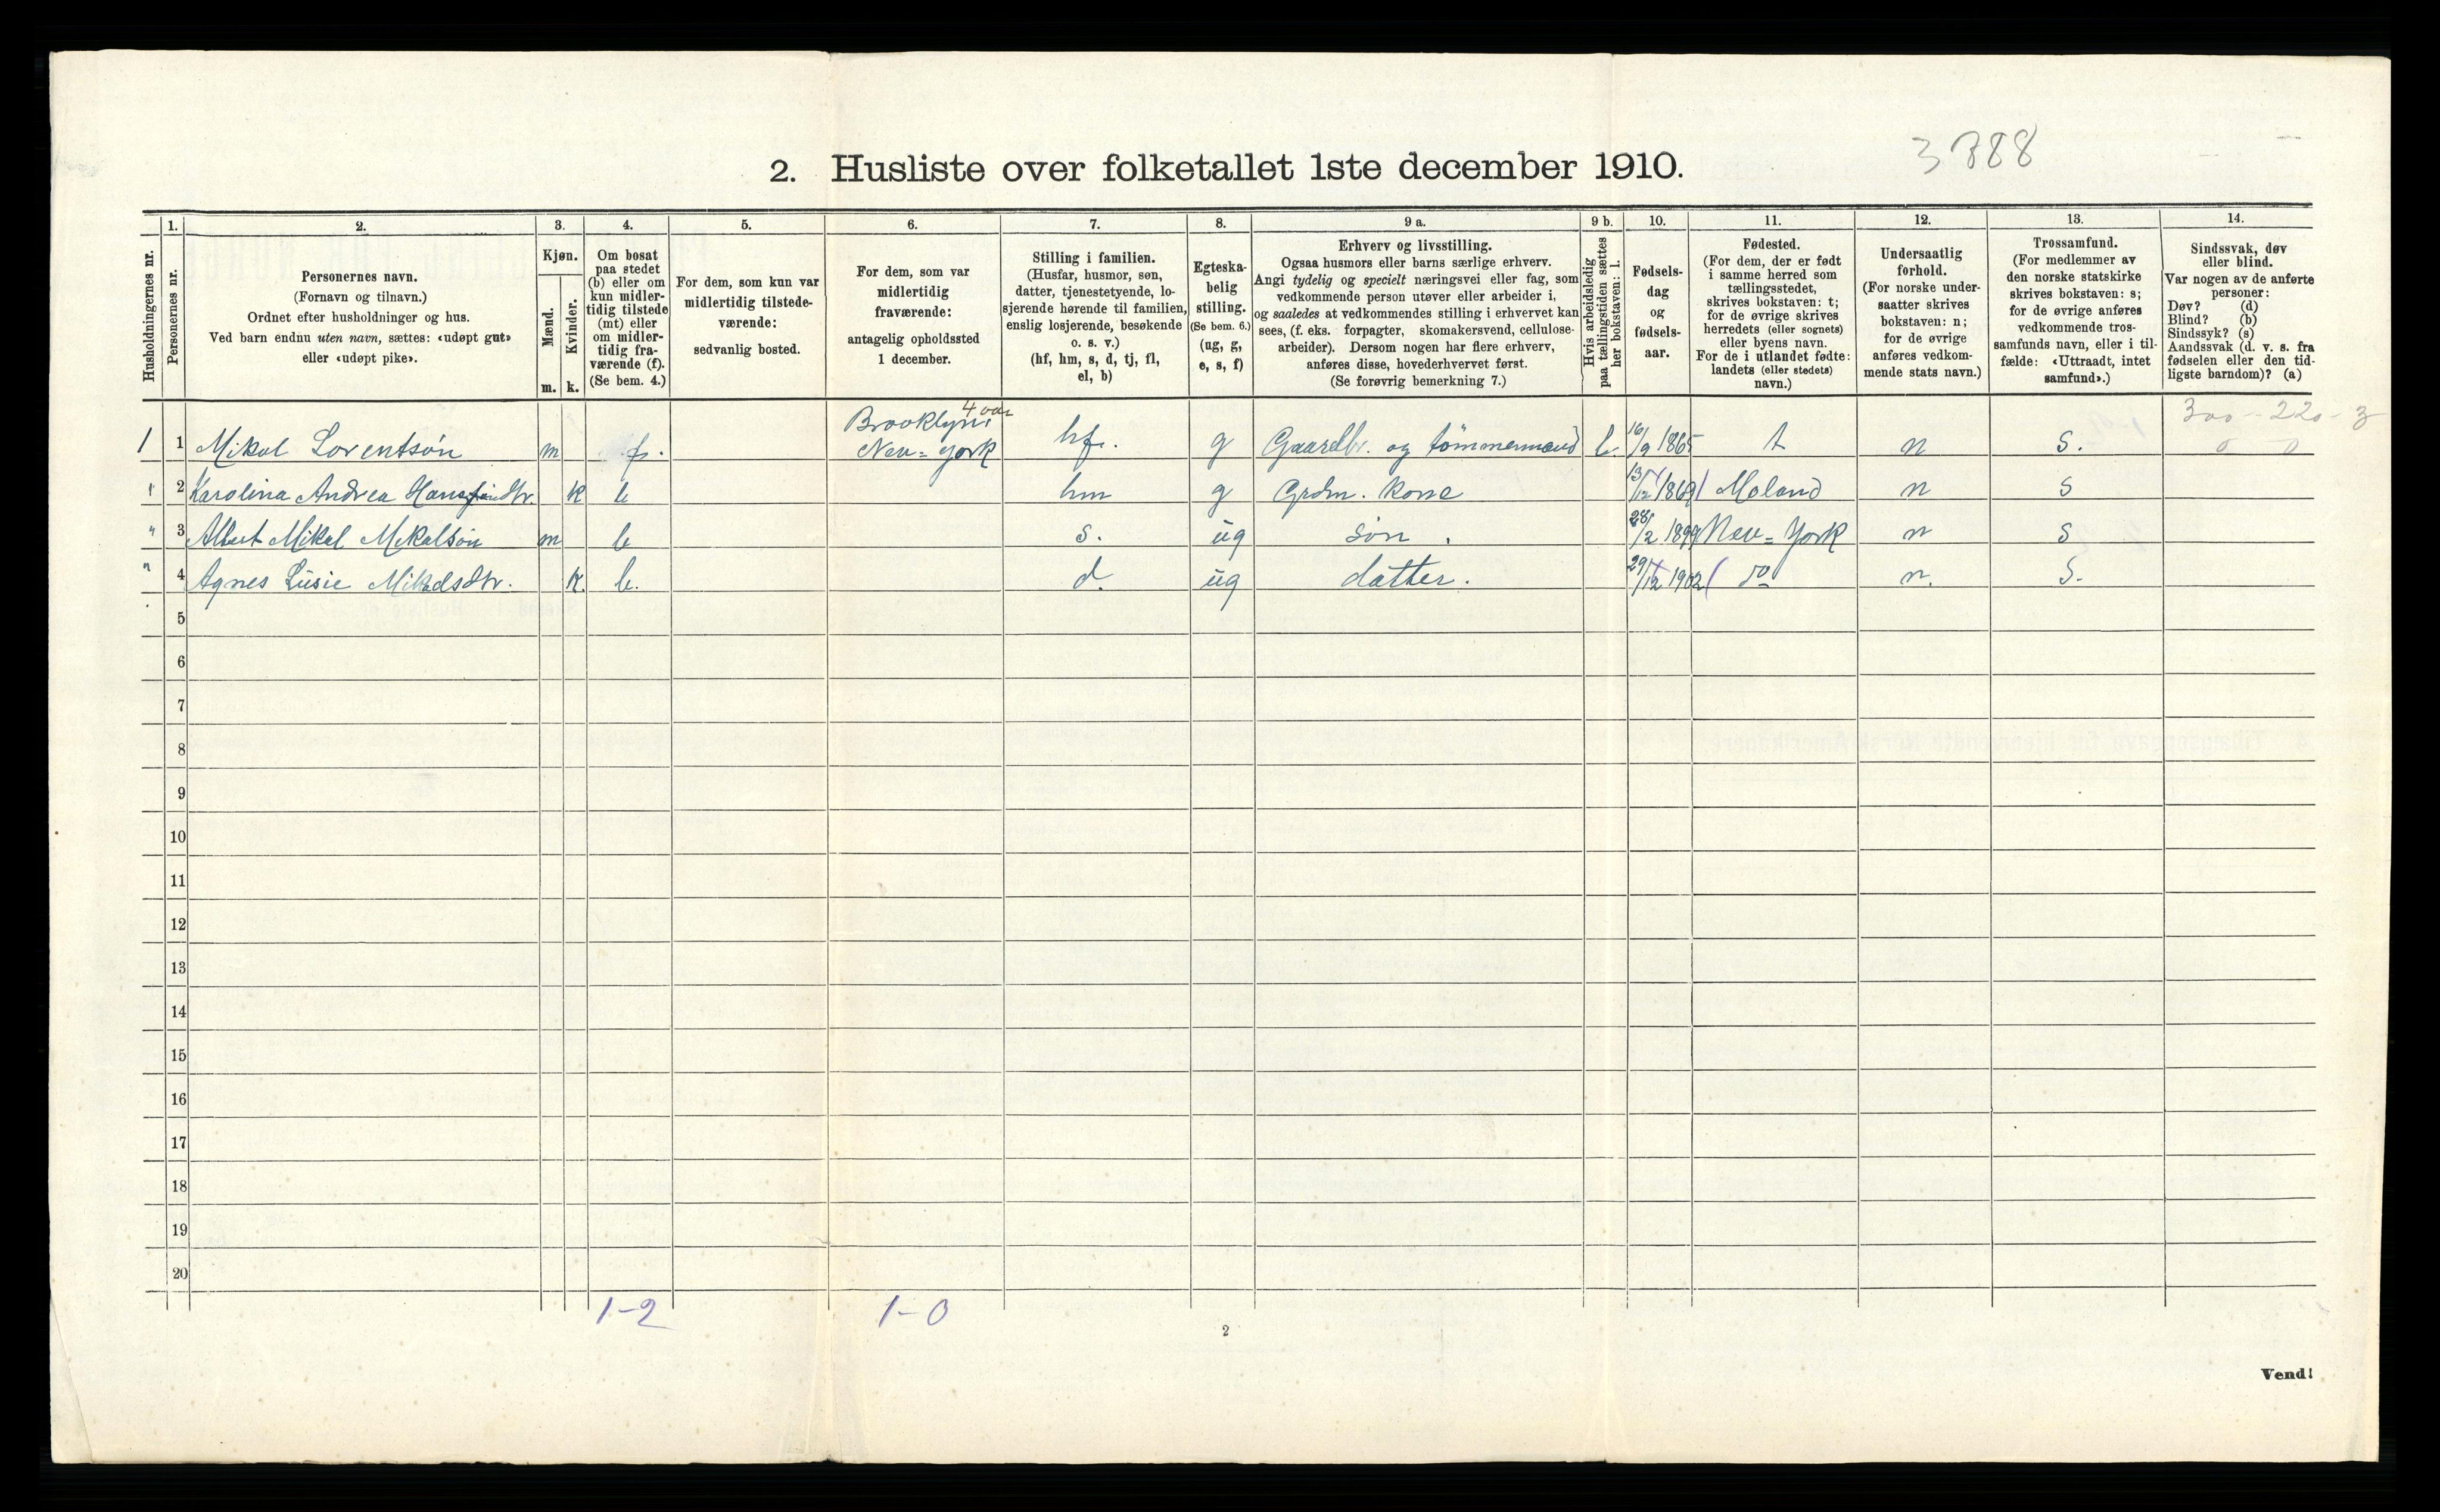 2. Husliste over folketallet 1ste december 1910.
3788
Husholdningernes nr.
1.
Personernes nr.
2.
Personernes navn.
(Fornavn og tilnavn.)
Ordnet efter husholdninger og hus.
Ved barn endnu uten navn, sættes: «udøpt gut»
eller «udøpt pike».
3.
Kjøn.
Mænd.
m.
Kvinder.
k.
4.
Om bosat
paa stedet
(b) eller om
kun midler-
tidig tilstede
(mt) eller
om midler-
tidig fra-
værende (f).
(Se bem. 4.)
5.
For dem, som kun var
midlertidig tilstede-
værende:
sedvanlig bosted.
6.
For dem, som var
midlertidig
fraværende:
antagelig opholdssted
1 december.
7.
Stilling i familien.
(Husfar, husmor, søn,
datter, tjenestetyende, lo-
sjerende hørende til familien,
enslig losjerende, besøkende
o. s. v.)
(hf, hm, s, d, tj, fl,
el, b)
8.
Egteska-
belig
stilling.
(Se bem. 6.)
(ug, g,
e, s, f)
9 a.
Erhverv og livsstilling.
Ogsaa husmors eller barns særlige erhverv.
Angi tydelig og specielt næringsvei eller fag, som
vedkommende person utøver eller arbeider i,
og saaledes at vedkommendes stilling i erhvervet kan
sees, (f. eks. forpagter, skomakersvend, cellulose-
arbeider). Dersom nogen har flere erhverv,
anføres disse, hovederhvervet først.
(Se forøvrig bemerkning 7.)
9 b.
Hvis arbeidsledig
paa tællingstiden sættes
her bokstaven: l.
10.
Fødsels-
dag
og
fødsels-
aar.
11.
Fødested.
(For dem, der er født
i samme herred som
tællingsstedet,
skrives bokstaven: t;
for de øvrige skrives
herredets (eller sognets)
eller byens navn.
For de i utlandet fødte:
landets (eller stedets)
navn.)
12.
Undersaatlig
forhold.
(For norske under-
saatter skrives
bokstaven: n;
for de øvrige
anføres vedkom-
mende stats navn.)
13.
Trossamfund.
(For medlemmer av
den norske statskirke
skrives bokstaven: s;
for de øvrige anføres
vedkommende tros-
samfunds navn, eller i til-
fælde: «Uttraadt, intet
samfund».)
14.
Sindssvak, døv
eller blind.
Var nogen av de anførte
personer:
Døv? (d)
Blind? (b)
Sindssyk? (s)
Aandssvak (d. v. s. fra
fødselen eller den tid-
ligste barndom)? (a)
300 - 220 - 3
0 0
1 1 Mikal Lorentsön m f. Brooklyn 4 aar New=York hf. g Gaardbr. og tömmermand 16/9 1865 t n s.
" 2 Karolina Andrea k b hm g Grdm. kone 13/12 1869 Moland n s
" 3 Albert Mikal Mikalsön m b s. ug sön. 28/2 1899 New=York n s
" 4 Agnes Lusie Mikalsdtr. k. b. d. ug datter. 29/12 1902 do n. s.
5
6
7
8
9
10
11
12
13
14
15
16
17
18
19
20
1-2 1-0
2
Vend!